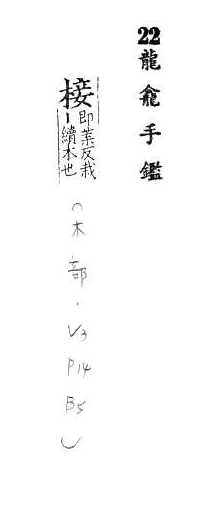 22龍龕手鑑
椄即葉反栽
丨續木也
(木部.V3 P14 B5)